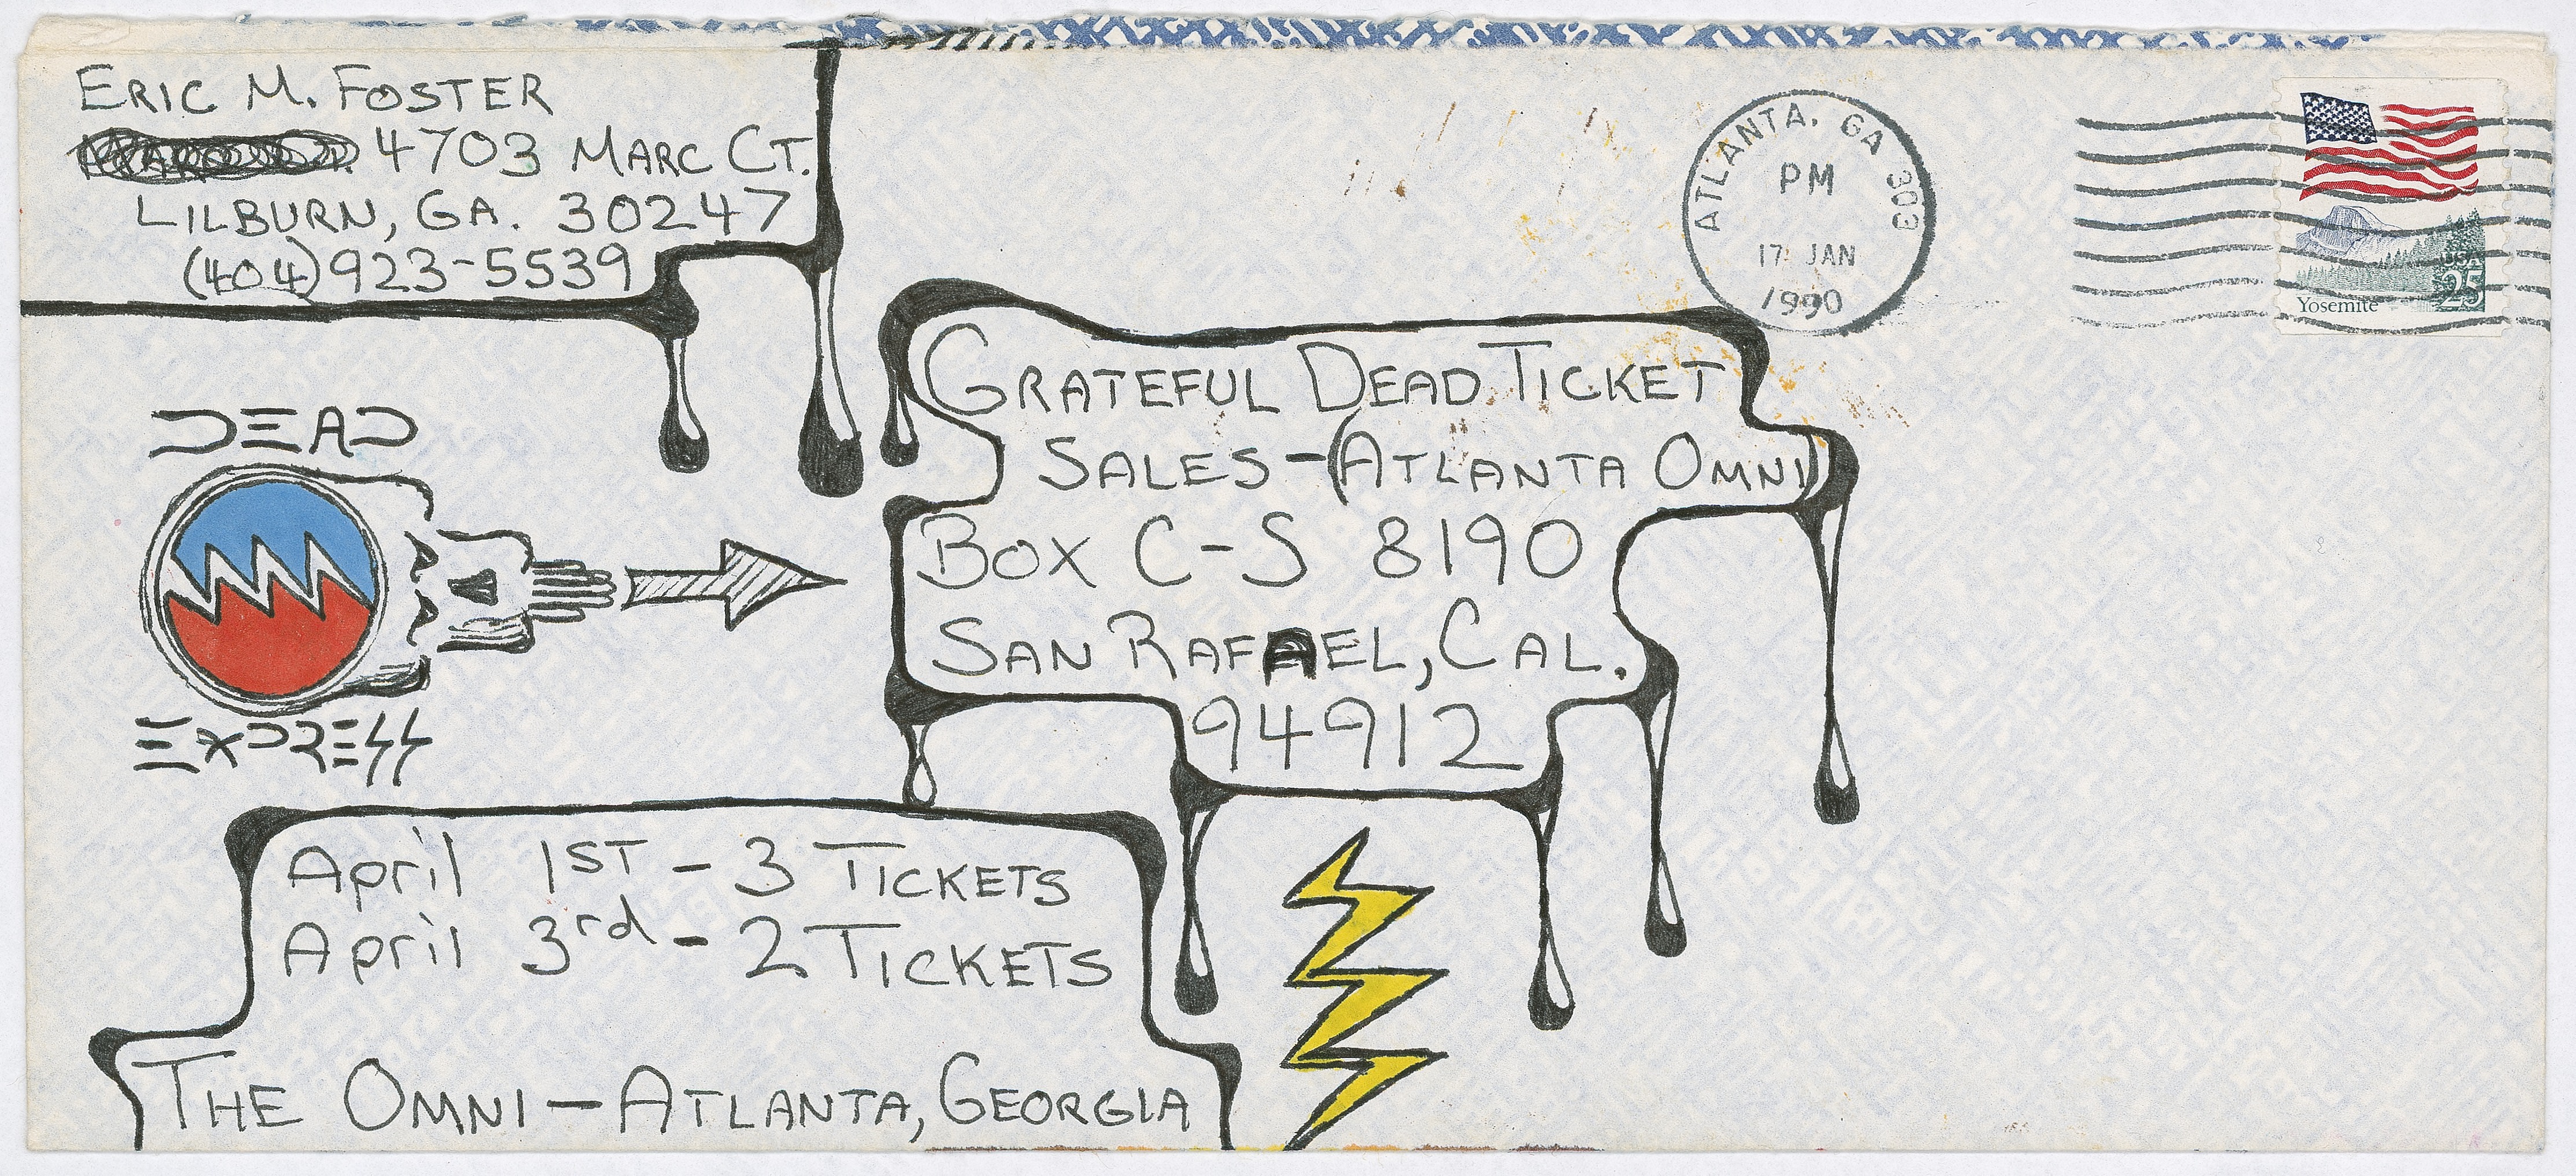 ERIC M. FOSTER
4703 MARC CT.
LILBURN, GA. 30247
(404) 923-5539
ATLANTA, GA 303
PM
17 JAN
1990
USA
25
Yosemite
GRATEFUL DEAD TICKET
SALES-(ATLANTA OMNI)
BOX C-S 8190
SAN RAFAEL, CAL.
94912
DEAD
EXPRESS
April 1ST - 3 TICKETS
April 3rd - 2 TICKETS
THE OMNI - ATLANTA, GEORGIA